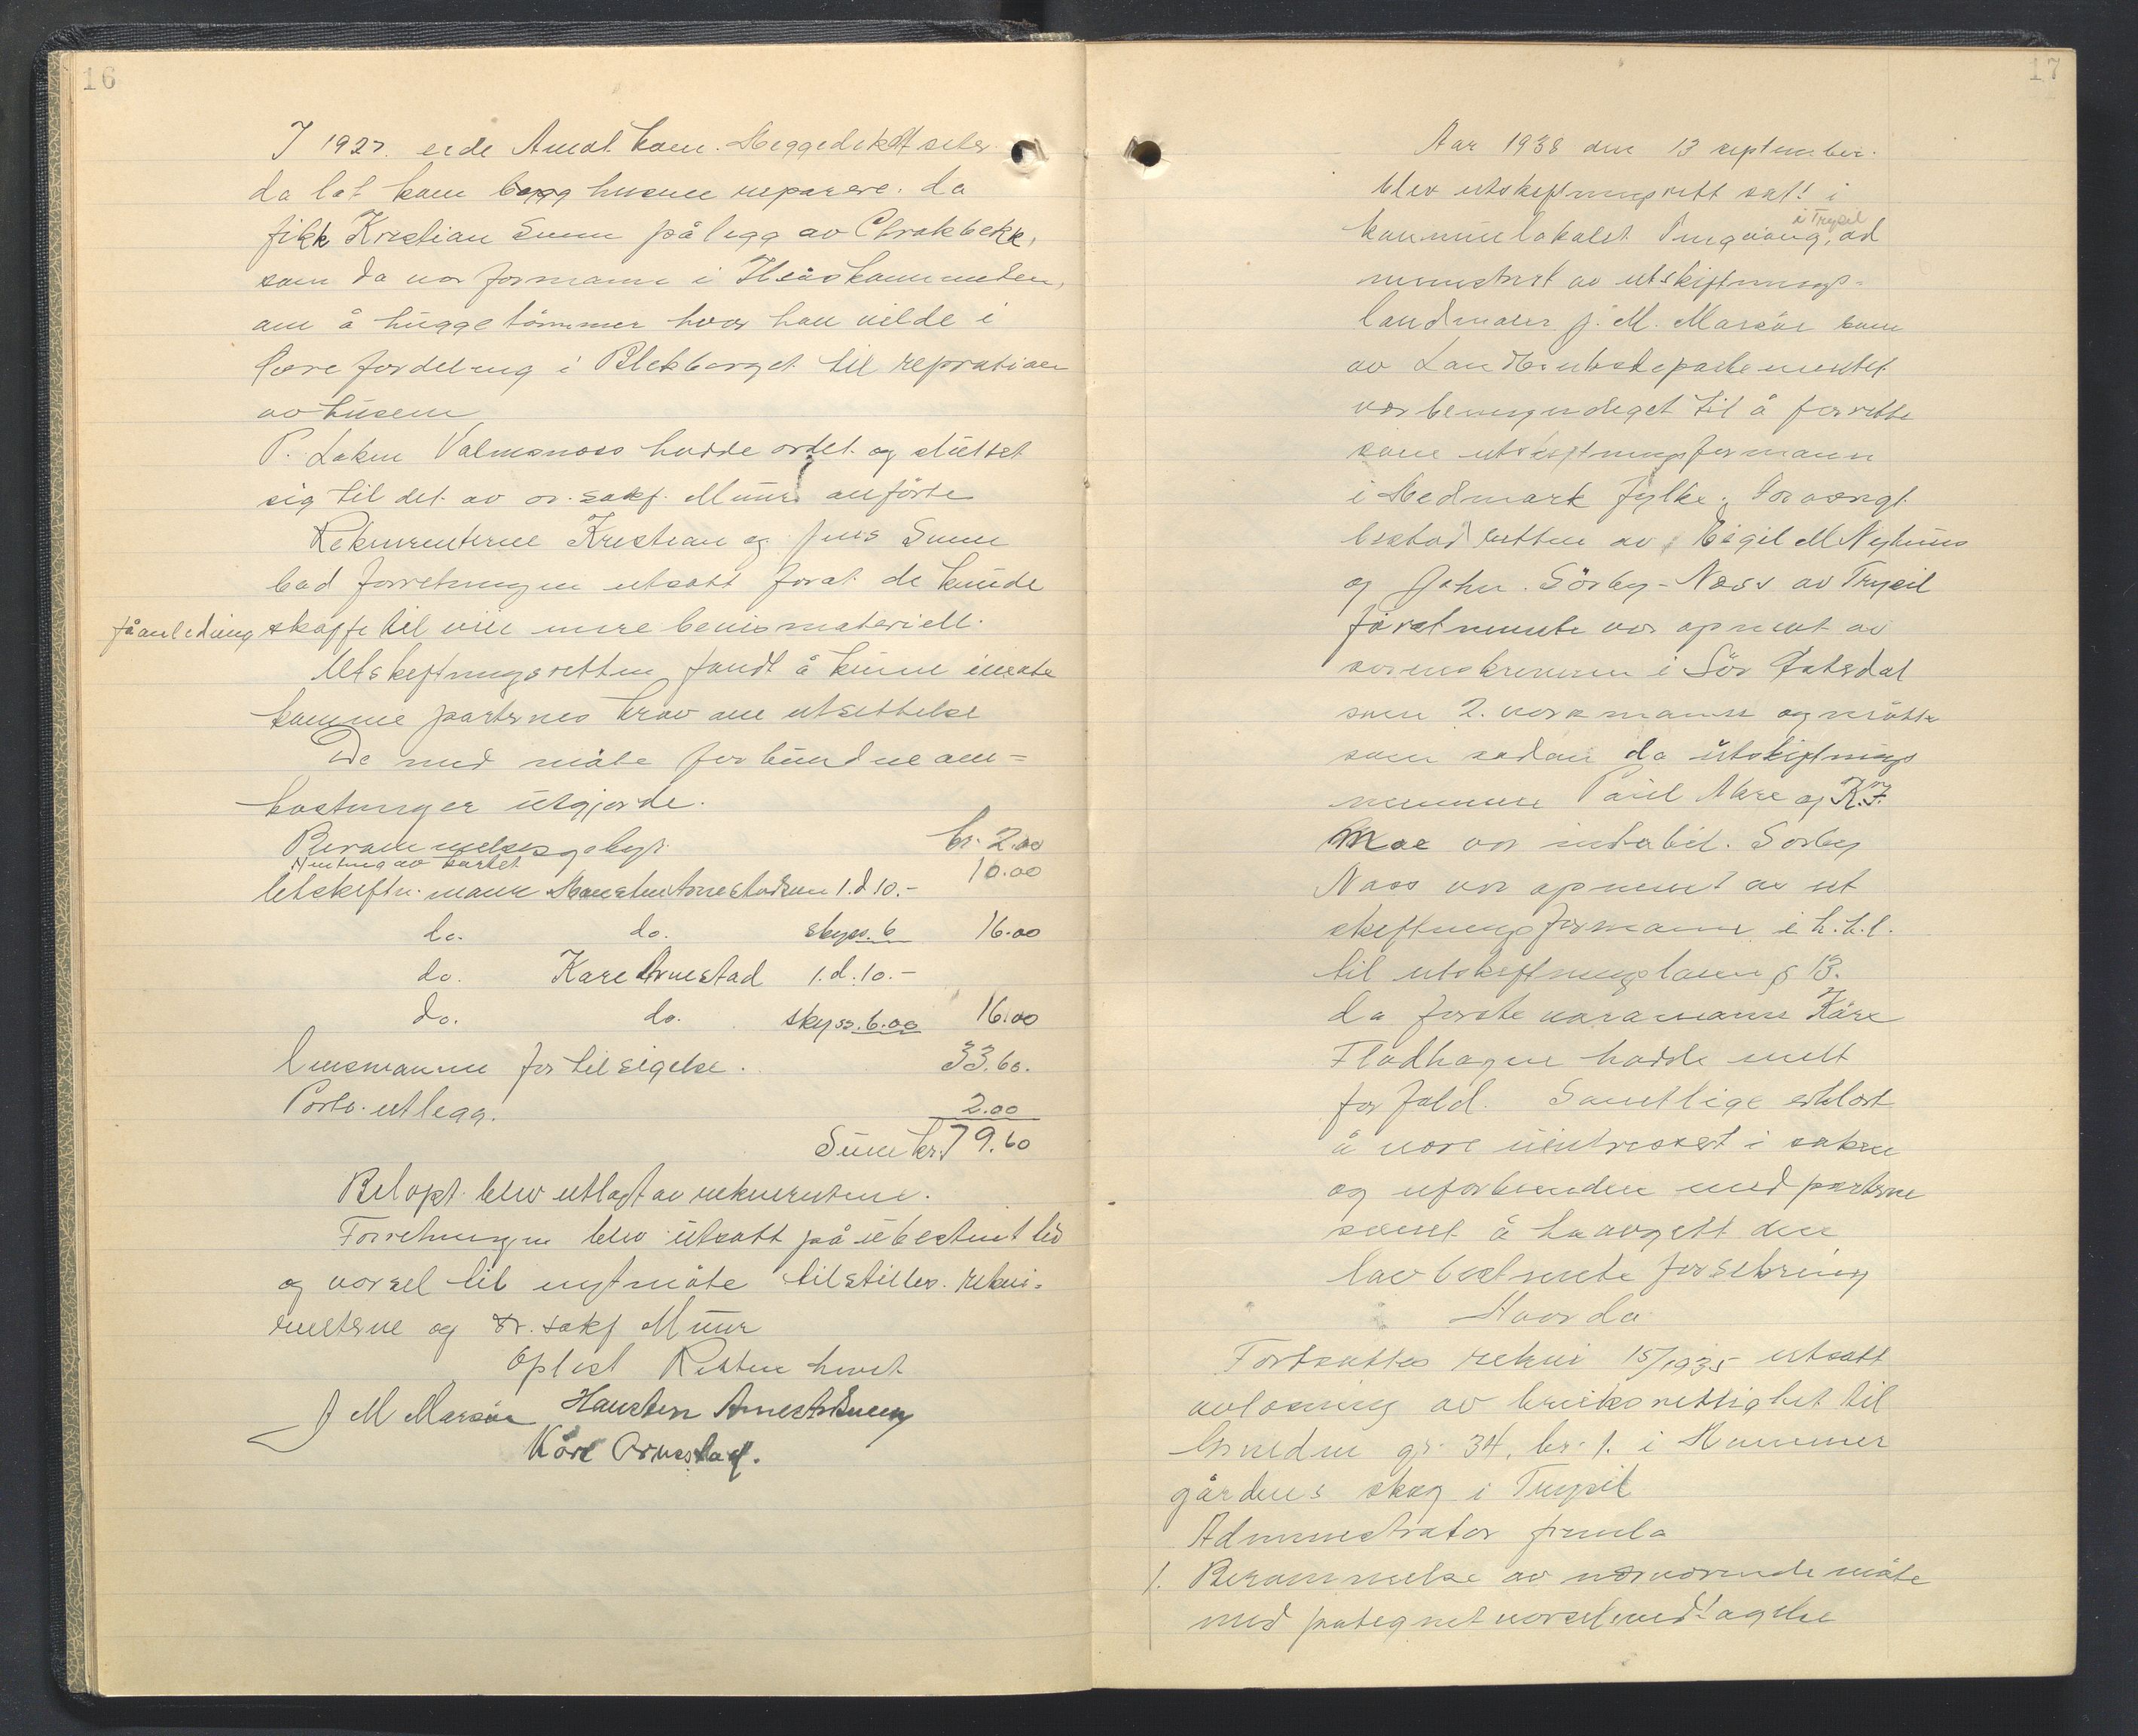 16
I 1927. eide Amot kom. Heggedekdt seter
da lot kom bygg husene reparere. da
fikk Kristian Sunn pålegg av Chrokbekk,
som da var formann i
om å hugge tømmer hvor han vilde i
fordeling i Blekberget til repration
av husene
P. Loken Valmsnoss hadde ordet og støttet
sig til det av or. sakf. Muur anførte
Rekvirenterne Kristian og Jens Sunn
bad forretningen utsatt forat de kunde
få anledning skaffe til veie mere bevismateriell.
Utskiftningsretten fandt å kunne imøte
komme parternes krav om utsettelse
De med møte forbundne om=
kostninger utgjorde.
Berammelsesgebyr. kr. 2.00
Nentning av kartet 10.00
Utskiftn. mann Hansten Arnestadsveen 1.d 10.-
do. do. skyss. 6 16.00
do. Kare Arnestad 1.d.10.-
do. do. skyss. 6.00 16.00
Lensmannen for tilsigelse. 33.60.
Porto. utlegg. 2.00
Sum kr. 79.60
Beløpt blev utlagt av rekvirentene.
Forretningen blev utsatt på ubestemt tid
og varsel til nyt møte tilstilles. rekvi=
renterne og or. sakf Muur
Oplest Retten hevet
J M Marsør Hansten Arnestadsveen
Kåre Arnestad.
17
Aar 1938 den 13 september.
blev utskiftningsrett satt i
i Trysil
kommunelokalet Ingvang, ad
ministrert av utskiftnings=
landmaler J. M. Marsør som
av Landbruksdepartementet
var bemyndiget til å forrette
som utskiftningsformann
i Hedmark fylke. Forøvrigt
bestod retten av Eigil M Nyhuus
og John. Sörby-Næss av Trysil
førstnevnte var opnevnt av
sorenskriveren i Sör Østerdal
som 2. varamann og møtte
som sådan da utskiftnings
mennene Paul Mære og K. F.
Moe var inhabil. Sorby
Næss var opnevnt av ut
skiftningsformann i h.t.l.
til utskiftningsloven § 13.
da første varamann Kåre
Flodhagen hadde meldt
forfald. Samtlige erklært
å være uintressert i saken
og uforbunden med parterne
samt å ha avgitt den
lovbestemte forsikring
Hvorda
Fortsattes rekvi 15/1935 utsatt
avløsning av bruksrettighet til
gr. 34. br. 1. i Hammer
gårdens skog i Trysil
Administrator fremla
1. Berammelse av nærværende møte
med påtegnet varselsvedtagelse